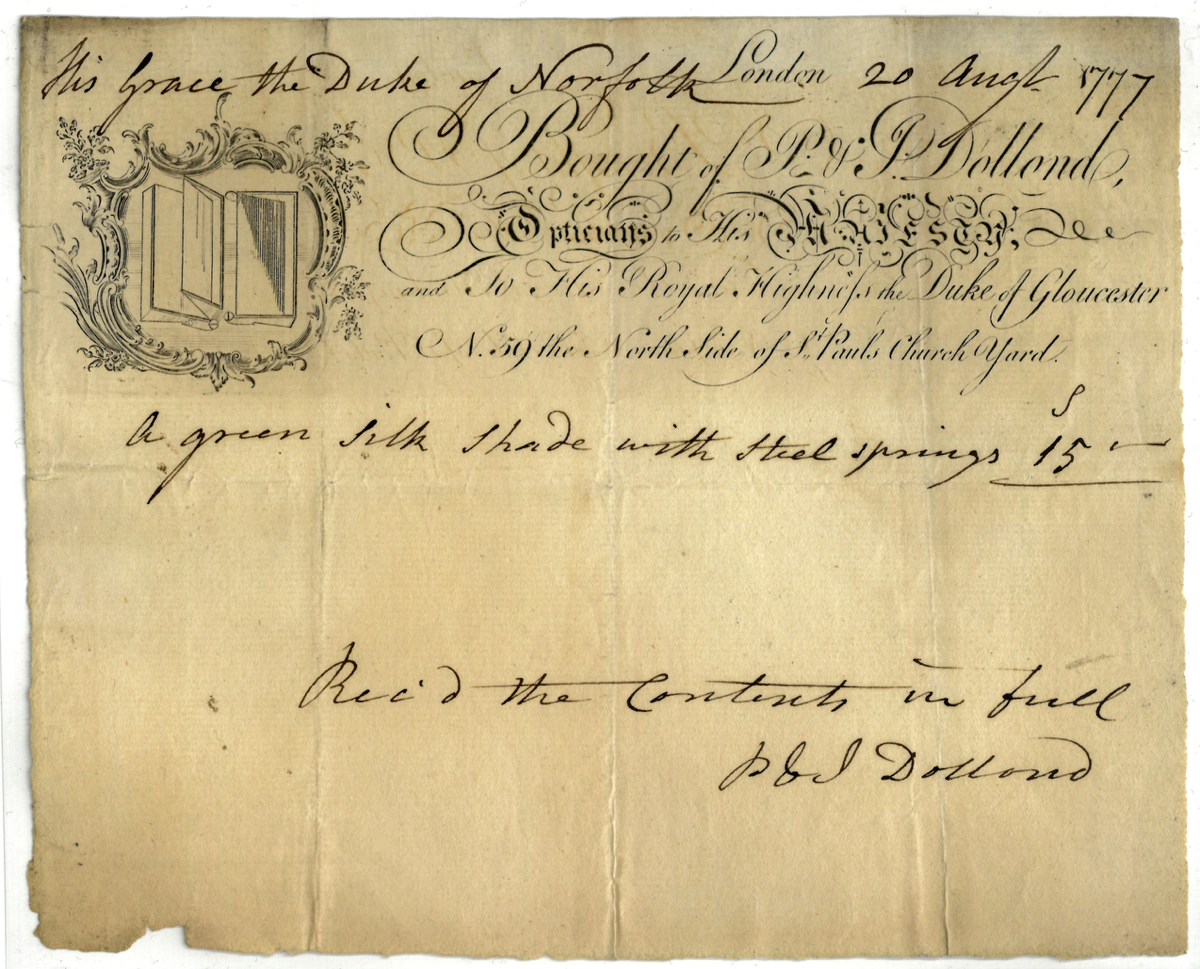 His Grace the Duke of Norfolk London 20 Augt 1777
Bought of P. & J. Dollond,
Opticians to His MAJESTY,
and To His Royal Highneſs the Duke of Gloucester
N. 59 the North Side of St Pauls Church Yard.
S
A green silk shade with steel springs 15 –
Rec'd the Contents in full
P & J Dollond